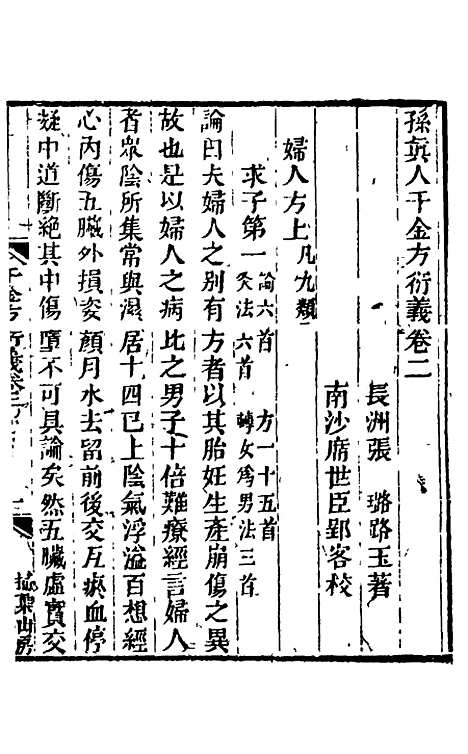 孫眞人千金方衍義卷二
長洲張　璐路玉著
南沙席世臣郢客校
婦人方上凡九類
求子第一論六首　方一十五首
灸法六首　轉女爲男法三首
論曰夫婦人之别有方者以其胎妊生產崩傷之異
故也是以婦人之病比之男子十倍難療經言婦人
者眾陰所集常與濕居十四已上陰氣浮溢百想經
心內傷五臟外損姿顏月水去留前後交互瘀血停
凝中道斷絕其中傷墮不可具論矣然五臟虛實交
千金方衍義卷二
掃葉山房